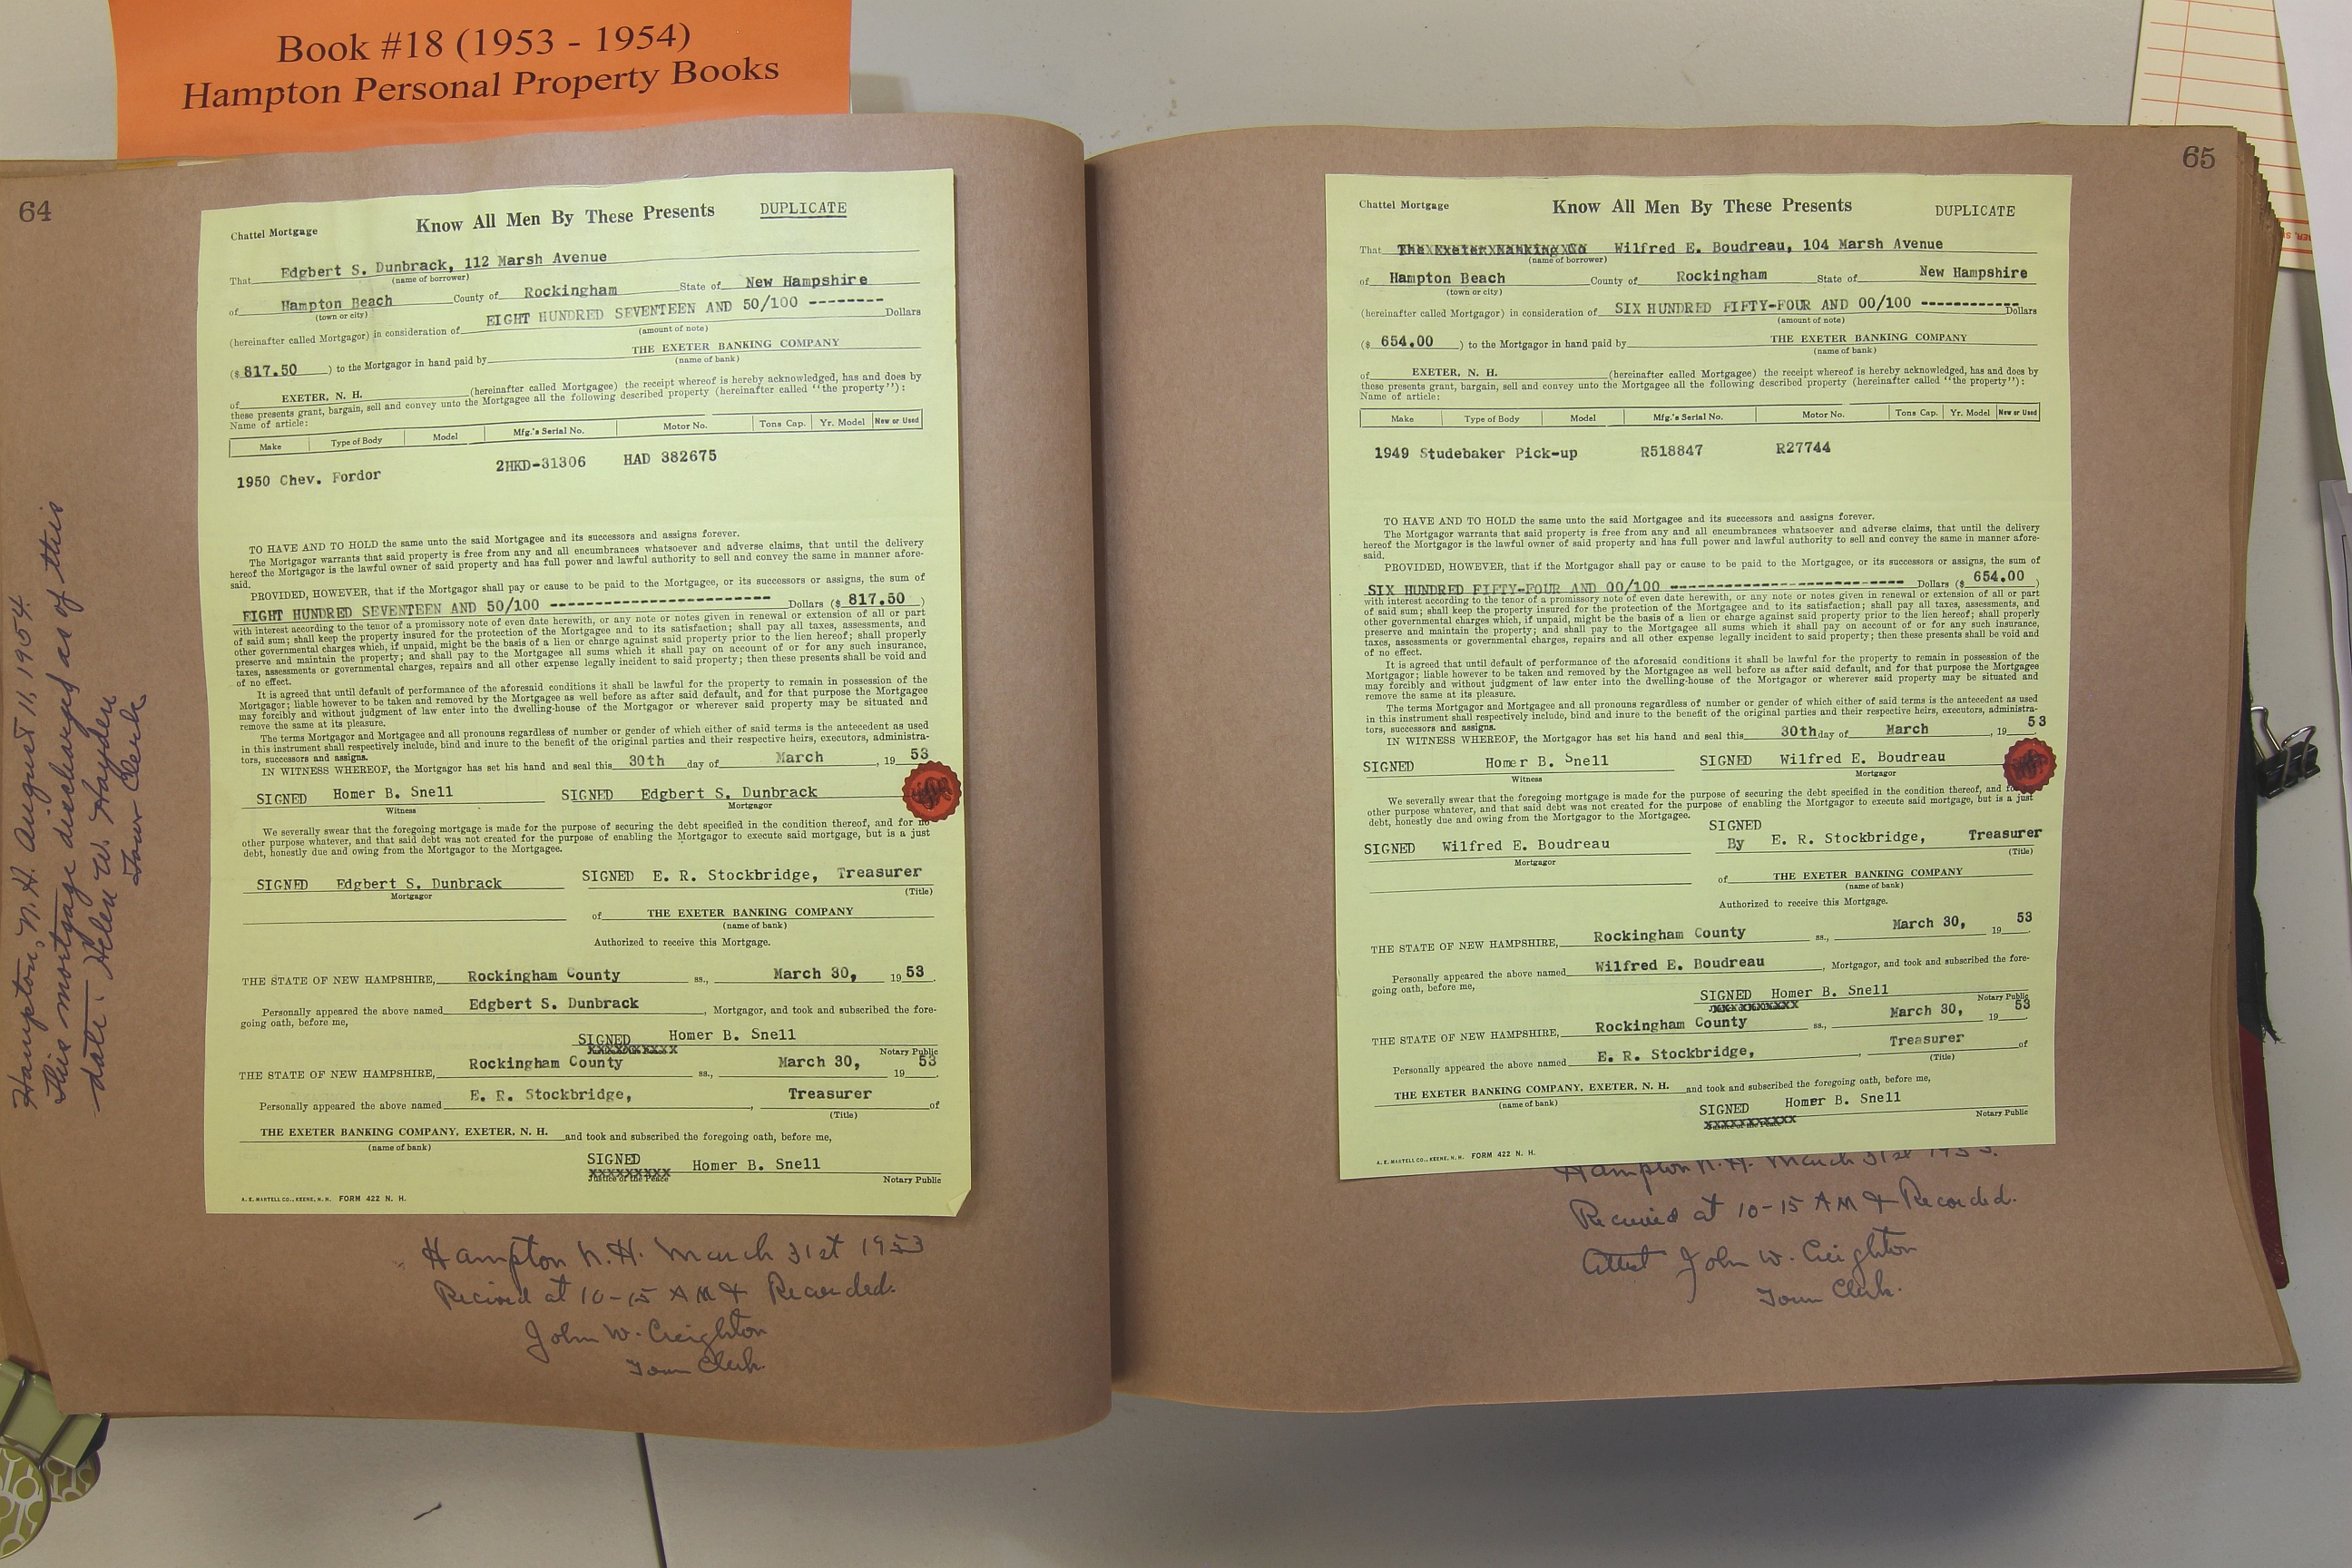 Book #18 (1953 - 1954)
Hampton Personal Property Books
64
Chattel Mortgage
Know All Men By These Presents
DUPLICATE
That Edgbert S. Dunbrack, 112 Marsh Avenue
(name of borrower)
of Hampton Beach County of Rockingham State of New Hampshire
(town or city)
(hereinafter called Mortgagor) in consideration of EIGHT HUNDRED SEVENTEEN AND 50/100 -------- Dollars
(amount of note)
($ 817.50 ) to the Mortgagor in hand paid by THE EXETER BANKING COMPANY
(name of bank)
of EXETER, N. H. (hereinafter called Mortgagee) the receipt whereof is hereby acknowledged, has and does by
these presents grant, bargain, sell and convey unto the Mortgagee all the following described property (hereinafter called "the property"):
Name of article:
Make Type of Body Model Mfg.'s Serial No. Motor No. Tons Cap. Yr. Model New or Used
1950 Chev. Fordor 2HKD-31306 HAD 382675
TO HAVE AND TO HOLD the same unto the said Mortgagee and its successors and assigns forever.
The Mortgagor warrants that said property is free from any and all encumbrances whatsoever and adverse claims, that until the delivery
hereof the Mortgagor is the lawful owner of said property and has full power and lawful authority to sell and convey the same in manner afore-
said.
PROVIDED, HOWEVER, that if the Mortgagor shall pay or cause to be paid to the Mortgagee, or its successors or assigns, the sum of
EIGHT HUNDRED SEVENTEEN AND 50/100 ------------------------ Dollars ($ 817.50 )
with interest according to the tenor of a promissory note of even date herewith, or any note or notes given in renewal or extension of all or part
of said sum; shall keep the property insured for the protection of the Mortgagee and to its satisfaction; shall pay all taxes, assessments, and
other governmental charges which, if unpaid, might be the basis of a lien or charge against said property prior to the lien hereof; shall properly
preserve and maintain the property; and shall pay to the Mortgagee all sums which it shall pay on account of or for any such insurance,
taxes, assessments or governmental charges, repairs and all other expense legally incident to said property; then these presents shall be void and
of no effect.
It is agreed that until default of performance of the aforesaid conditions it shall be lawful for the property to remain in possession of the
Mortgagor; liable however to be taken and removed by the Mortgagee as well before as after said default, and for that purpose the Mortgagee
may forcibly and without judgment of law enter into the dwelling-house of the Mortgagor or wherever said property may be situated and
remove the same at its pleasure.
The terms Mortgagor and Mortgagee and all pronouns regardless of number or gender of which either of said terms is the antecedent as used
in this instrument shall respectively include, bind and inure to the benefit of the original parties and their respective heirs, executors, administra-
tors, successors and assigns.
IN WITNESS WHEREOF, the Mortgagor has set his hand and seal this 30th day of March , 19 53
SIGNED Homer B. Snell SIGNED Edgbert S. Dunbrack
Witness Mortgagor
We severally swear that the foregoing mortgage is made for the purpose of securing the debt specified in the condition thereof, and for no
other purpose whatever, and that said debt was not created for the purpose of enabling the Mortgagor to execute said mortgage, but is a just
debt, honestly due and owing from the Mortgagor to the Mortgagee.
SIGNED Edgbert S. Dunbrack SIGNED E. R. Stockbridge, Treasurer
Mortgagor (Title)
of THE EXETER BANKING COMPANY
(name of bank)
Authorized to receive this Mortgage.
THE STATE OF NEW HAMPSHIRE, Rockingham County ss., March 30, 19 53.
Personally appeared the above named Edgbert S. Dunbrack , Mortgagor, and took and subscribed the fore-
going oath, before me,
SIGNED Homer B. Snell
Justice of the Peace Notary Public
THE STATE OF NEW HAMPSHIRE, Rockingham County ss., March 30, 19 53
Personally appeared the above named E. R. Stockbridge, , Treasurer of
(Title)
THE EXETER BANKING COMPANY, EXETER, N. H. and took and subscribed the foregoing oath, before me,
(name of bank)
SIGNED Homer B. Snell
Justice of the Peace Notary Public
A. E. MARTELL CO., KEENE, N. H. FORM 422 N. H.
Hampton N.H. March 31st 1953
Recived at 10-15 AM & Recorded.
John W. Creighton
Town Clerk.
Hampton, N. H. August 11, 1954.
This mortgage discharged as of this
date. Helen W. Hayden
Town Clerk
65
Chattel Mortgage
Know All Men By These Presents
DUPLICATE
That The Exeter Banking Co Wilfred E. Boudreau, 104 Marsh Avenue
(name of borrower)
of Hampton Beach County of Rockingham State of New Hampshire
(town or city)
(hereinafter called Mortgagor) in consideration of SIX HUNDRED FIFTY-FOUR AND 00/100 ------------ Dollars
(amount of note)
($ 654.00 ) to the Mortgagor in hand paid by THE EXETER BANKING COMPANY
(name of bank)
of EXETER, N. H. (hereinafter called Mortgagee) the receipt whereof is hereby acknowledged, has and does by
these presents grant, bargain, sell and convey unto the Mortgagee all the following described property (hereinafter called "the property"):
Name of article:
Make Type of Body Model Mfg.'s Serial No. Motor No. Tons Cap. Yr. Model New or Used
1949 Studebaker Pick-up R518847 R27744
TO HAVE AND TO HOLD the same unto the said Mortgagee and its successors and assigns forever.
The Mortgagor warrants that said property is free from any and all encumbrances whatsoever and adverse claims, that until the delivery
hereof the Mortgagor is the lawful owner of said property and has full power and lawful authority to sell and convey the same in manner afore-
said.
PROVIDED, HOWEVER, that if the Mortgagor shall pay or cause to be paid to the Mortgagee, or its successors or assigns, the sum of
SIX HUNDRED FIFTY-FOUR AND 00/100 -------------------------- Dollars ($ 654.00 )
with interest according to the tenor of a promissory note of even date herewith, or any note or notes given in renewal or extension of all or part
of said sum; shall keep the property insured for the protection of the Mortgagee and to its satisfaction; shall pay all taxes, assessments, and
other governmental charges which, if unpaid, might be the basis of a lien or charge against said property prior to the lien hereof; shall properly
preserve and maintain the property; and shall pay to the Mortgagee all sums which it shall pay on account of or for any such insurance,
taxes, assessments or governmental charges, repairs and all other expense legally incident to said property; then these presents shall be void and
of no effect.
It is agreed that until default of performance of the aforesaid conditions it shall be lawful for the property to remain in possession of the
Mortgagor; liable however to be taken and removed by the Mortgagee as well before as after said default, and for that purpose the Mortgagee
may forcibly and without judgment of law enter into the dwelling-house of the Mortgagor or wherever said property may be situated and
remove the same at its pleasure.
The terms Mortgagor and Mortgagee and all pronouns regardless of number or gender of which either of said terms is the antecedent as used
in this instrument shall respectively include, bind and inure to the benefit of the original parties and their respective heirs, executors, administra-
tors, successors and assigns.
IN WITNESS WHEREOF, the Mortgagor has set his hand and seal this 30th day of March , 19 53
SIGNED Homer B. Snell SIGNED Wilfred E. Boudreau
Witness Mortgagor
We severally swear that the foregoing mortgage is made for the purpose of securing the debt specified in the condition thereof, and
other purpose whatever, and that said debt was not created for the purpose of enabling the Mortgagor to execute said mortgage, but is a just
debt, honestly due and owing from the Mortgagor to the Mortgagee.
SIGNED
SIGNED Wilfred E. Boudreau By E. R. Stockbridge, Treasurer
Mortgagor (Title)
of THE EXETER BANKING COMPANY
(name of bank)
Authorized to receive this Mortgage.
THE STATE OF NEW HAMPSHIRE, Rockingham County ss., March 30, 19 53
Personally appeared the above named Wilfred E. Boudreau , Mortgagor, and took and subscribed the fore-
going oath, before me,
SIGNED Homer B. Snell
Notary Public
THE STATE OF NEW HAMPSHIRE, Rockingham County ss., March 30, 19 53
Personally appeared the above named E. R. Stockbridge, , Treasurer of
(Title)
THE EXETER BANKING COMPANY, EXETER, N. H. and took and subscribed the foregoing oath, before me,
(name of bank)
SIGNED Homer B. Snell
Justice of the Peace Notary Public
A. E. MARTELL CO., KEENE, N. H. FORM 422 N. H.
Hampton N.H. March 31st 1953.
Received at 10-15 AM & Recorded.
Attest John W. Creighton
Town Clerk.